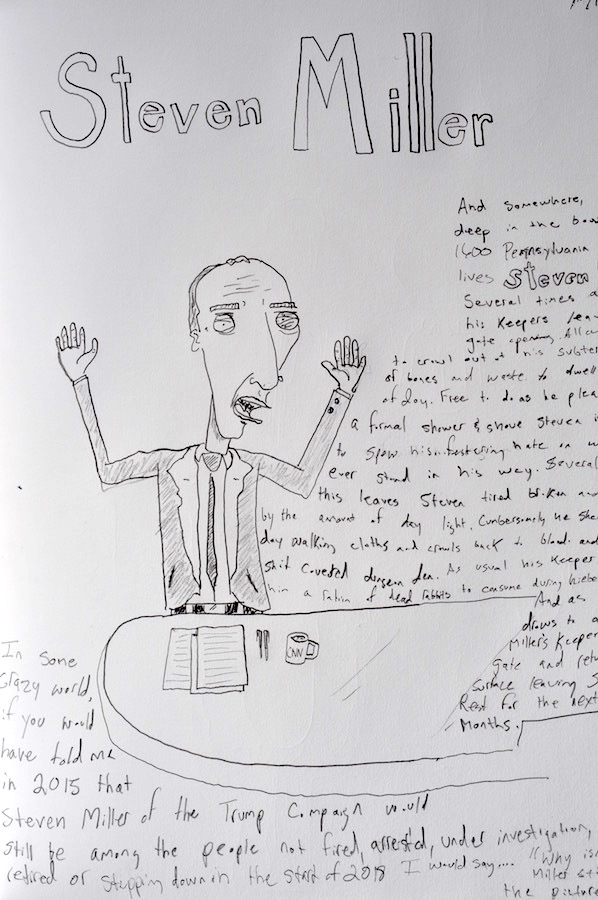 Steven Miller
And somewhere,
deep in the
1600 Pennsylvania
lives Steven
Several times a
his Keepers
gate opening.
to crawl out of his
of bones and waste to dwell
of day. Free to do as he
a formal shower & shave Steven
to spew his festering hate on
ever stand in his way. Several
this leaves Steven tired broken and
by the amount of day light. Cumbersomely he
day walking cloths and crawls back to blood and
shit covered dungeon den. As usual his Keeper
him a ration of dead rabbits to consume during
And as
draws to a
Miller's Keeper
gate and
surface leaving
Rest for the next
Months.
CNN
In some
crazy world,
if you would
have told me
in 2015 that
Steven Miller of the Trump Campaign would
still be among the people not fired, arrested, under investigation,
retired or stepping down in the start of 2018 I would say.... "Why
Miller
the picture